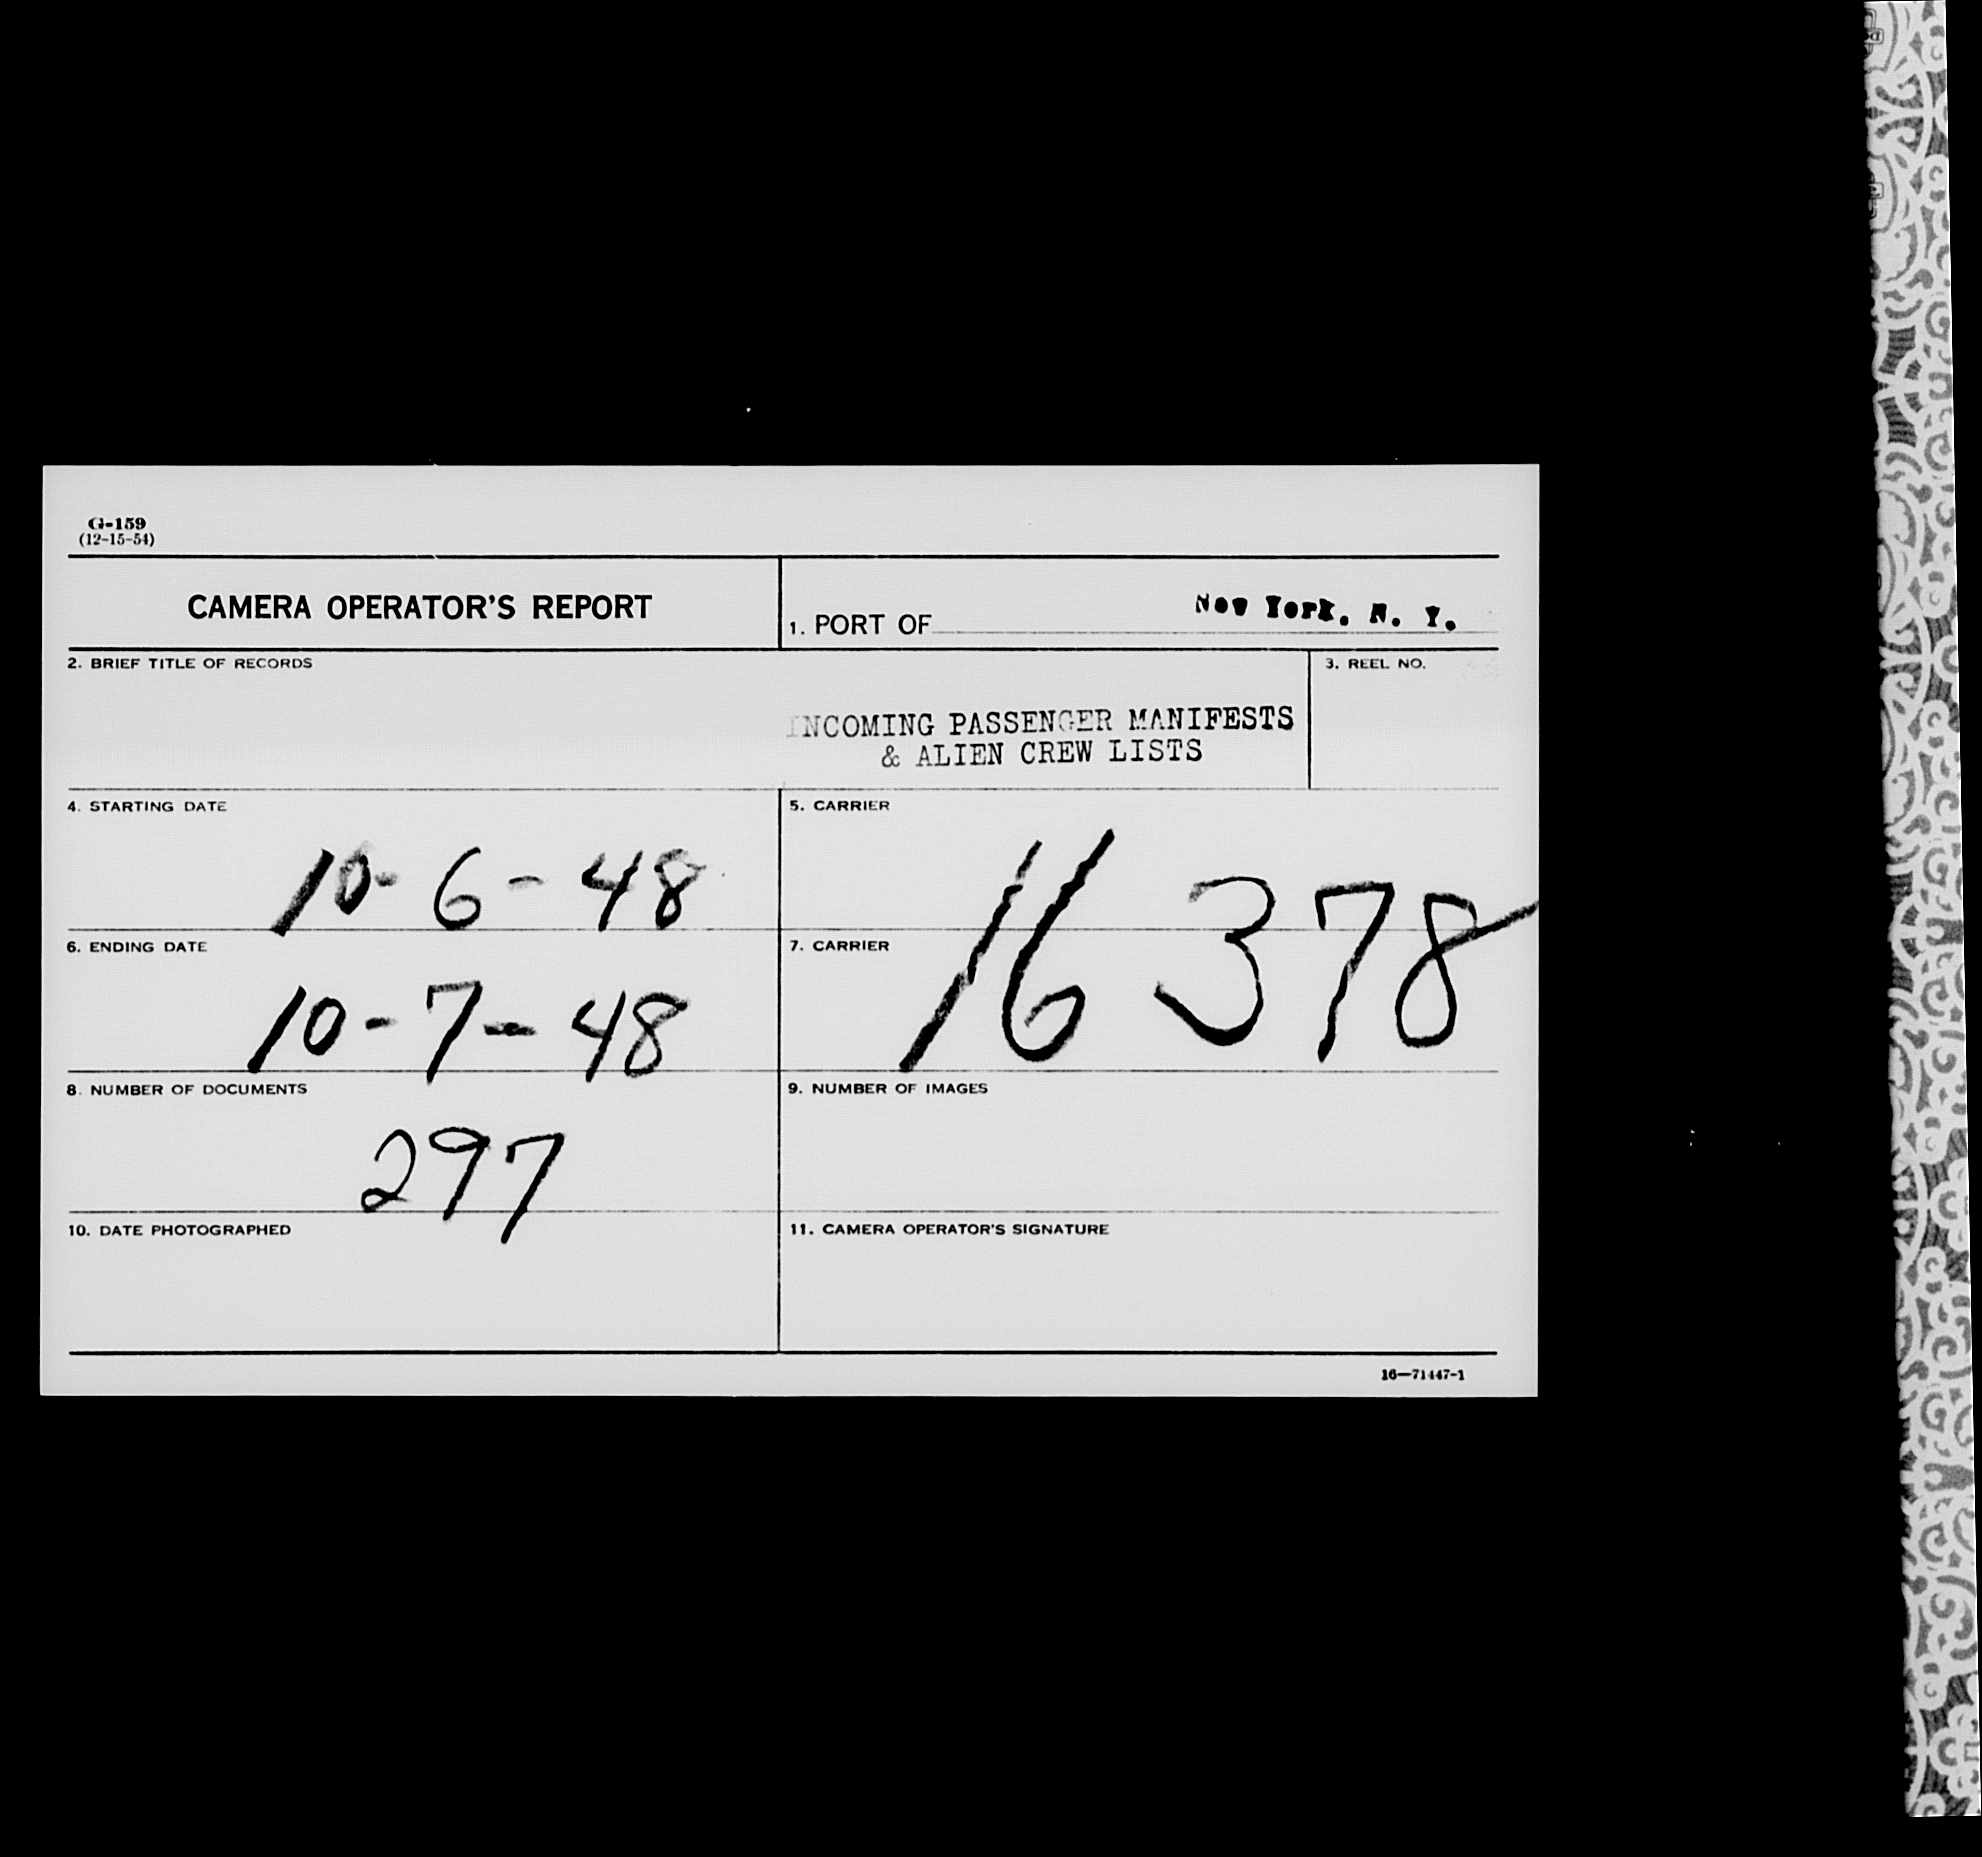 G-159
(12-15-54)
CAMERA OPERATOR'S REPORT
1. PORT OF New York, N. Y.
2. BRIEF TITLE OF RECORDS
3. REEL NO.
INCOMING PASSENGER MANIFESTS
& ALIEN CREW LISTS
4. STARTING DATE
10-6-48
5. CARRIER
6. ENDING DATE
10-7-48
7. CARRIER
16378
8. NUMBER OF DOCUMENTS
297
9. NUMBER OF IMAGES
10. DATE PHOTOGRAPHED
11. CAMERA OPERATOR'S SIGNATURE
16—71447-1